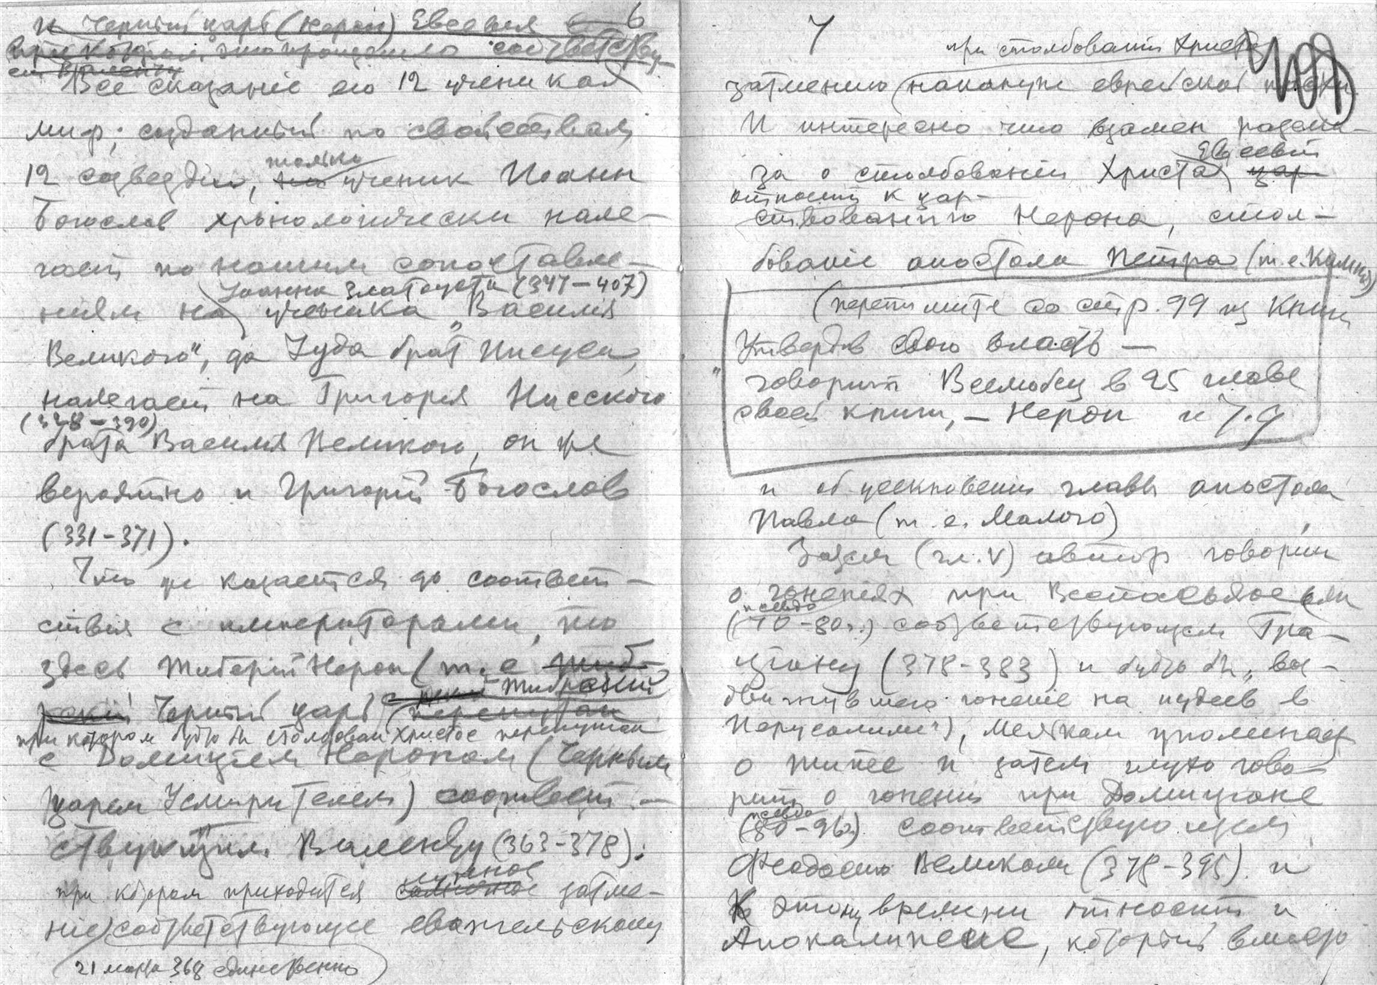 и Черный царь (Нерон) Евсевия 6
соответству
Все сказание его 12 учениках
миф, созданный по свойствам
12 созвездий, только ученик Иоанн
Богослов хронологически нале-
гает по нашим сопоставле-
Иоанна Златоуста (347–407)
ниям на ученика „Василия
Великого", да Иуда брат Иисуса,
налегает на Григория Нисского
(338–390)
брата Василия Великого, он же
вероятно и Григорий Богослов
(331–371).
Что же касается до соответ-
ствия с императорами, то
здесь Тиберий Нерон (т. е.
Тибрский
Черный царь
при котором будто бы столбован Христос перепутан
с Домицием Нероном (Черным
царем Усмирителем) соответ-
ствующим Валенту (363–378),
при котором приходится лунное затме-
ние соответствующее евангельскому
21 марта 368 единственно
7
при столбовании Христа
затмению накануне еврейской пасхи
И интересно что взамен расска-
за о столбовании Христа Евсевий
относит к цар-
ствованию Нерона, стол-
бование апостола Петра (т. е. Камня)
(перепишите со стр. 99 из Книги
Утвердив свою власть —
„говорит Всемовец в 25 главе
своей книги, – Нерон и т. д
и об усекновении главы апостола
Павла (т. е. Малого)
Затем (гл. V) автор говорит
о гонениях при Веспасьяне
псевдо
(70–80 г.) соответствующем Гра-
циану (378–383) и будто бы „воз-
двигнувшего гонение на иудеев в
Иерусалиме"), мельком упоминает
о Тите и затем глухо гово-
рит о гонении при Домициане
псевдо
(80–96) соответствующем
Феодосию Великому (378–395) и
К этому времени относит и
Апокалипсис, который вместо